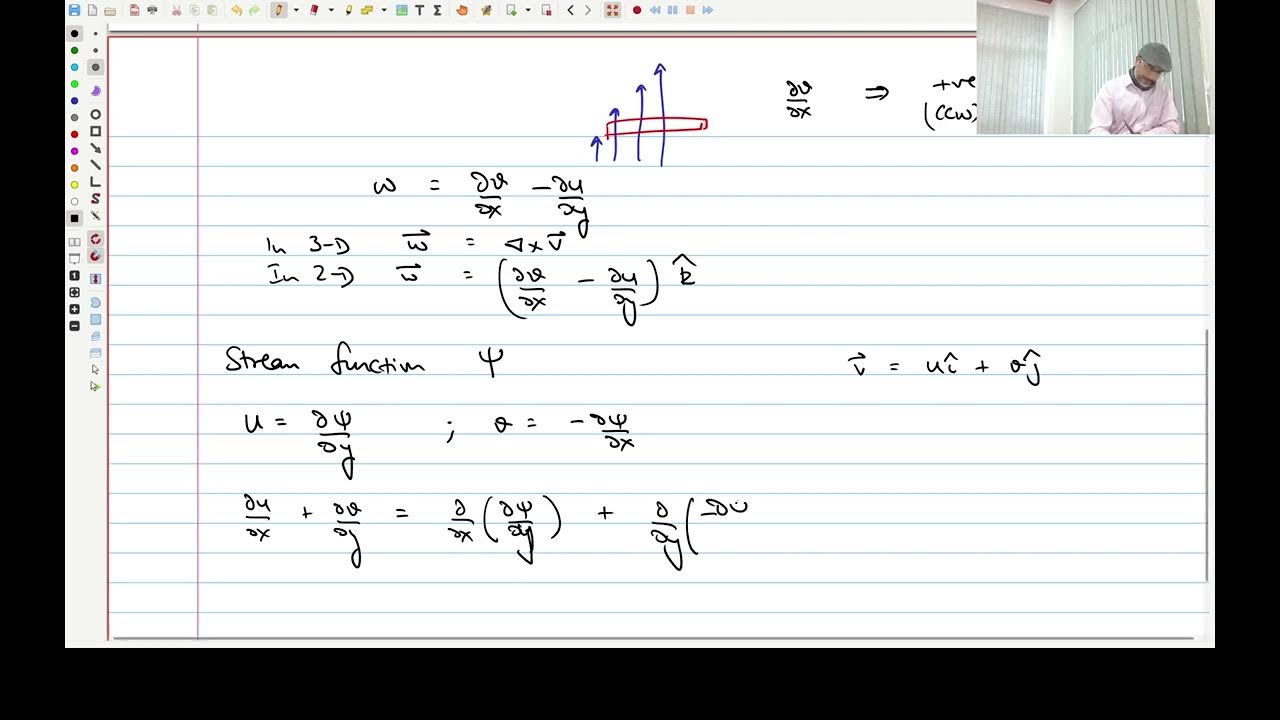 ∂v/∂x ⇒ +ve
(ccw)
ω = ∂v/∂x − ∂u/∂y
In 3-D ω⃗ = ∇ × v⃗
In 2-D ω⃗ = (∂v/∂x − ∂u/∂y) k̂
Stream function ψ v⃗ = uî + vĵ
u = ∂ψ/∂y ; v = −∂ψ/∂x
∂u/∂x + ∂v/∂y = ∂/∂x (∂ψ/∂y) + ∂/∂y (−∂